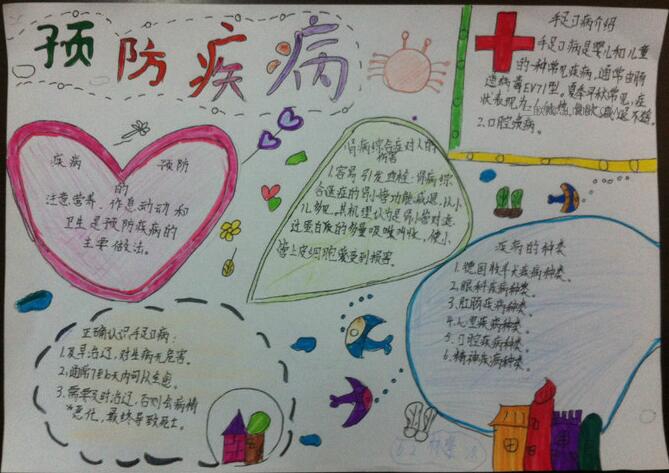 预防疾病
手足口病介绍
手足口病是婴儿和儿童
的一种常见疾病,通常由肠
道病毒EV71型。夏季早秋常见,症
状表现为:1.
2.口腔疾病。
肾病综合症对人的
伤害
1.容易引发血栓:肾病综
合症症的肾小管功能减退,从小
儿多见,其机理认为是肾小管对
过里白质的多量吸
管上皮细胞受到损害。
疾病 预防
的
注意营养,作息劳动和
卫生是预防疾病的
主要做法。
疾病的种类
1.德国牧羊犬疾病种类。
2.眼科疾病种类。
3.肛肠疾病种类。
4.心里疾病种类。
5.口腔疾病种类。
6.精神疾病种类。
正确认识手足口病:
1.及早治疗,对生病无危害。
2.通常7到10天内可以全愈。
3.需要及时治疗,否则会病情
恶化,最终导致死亡。